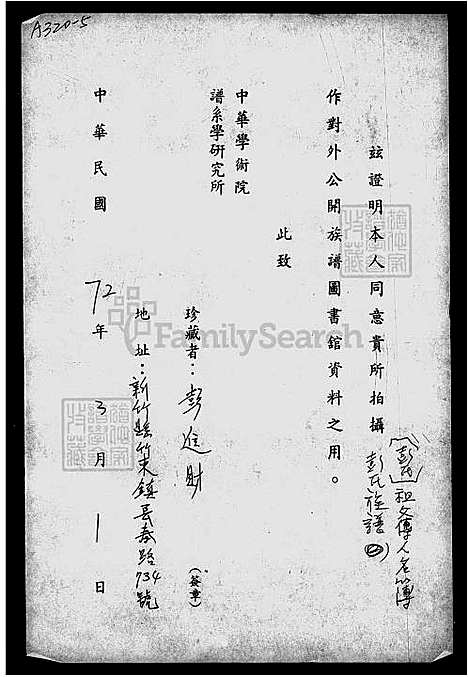 A320-5
玆證明本人同意貴所拍攝 彭氏族譜
〔彭氏〕祖文傳人名簿
作對外公開族譜圖書館資料之用。
此致
中華學術院
譜系學研究所
珍藏者：彭進財 (簽章)
地址：新竹縣竹東鎮長春路734號
中華民國 72年 3月 1日
FamilySearch